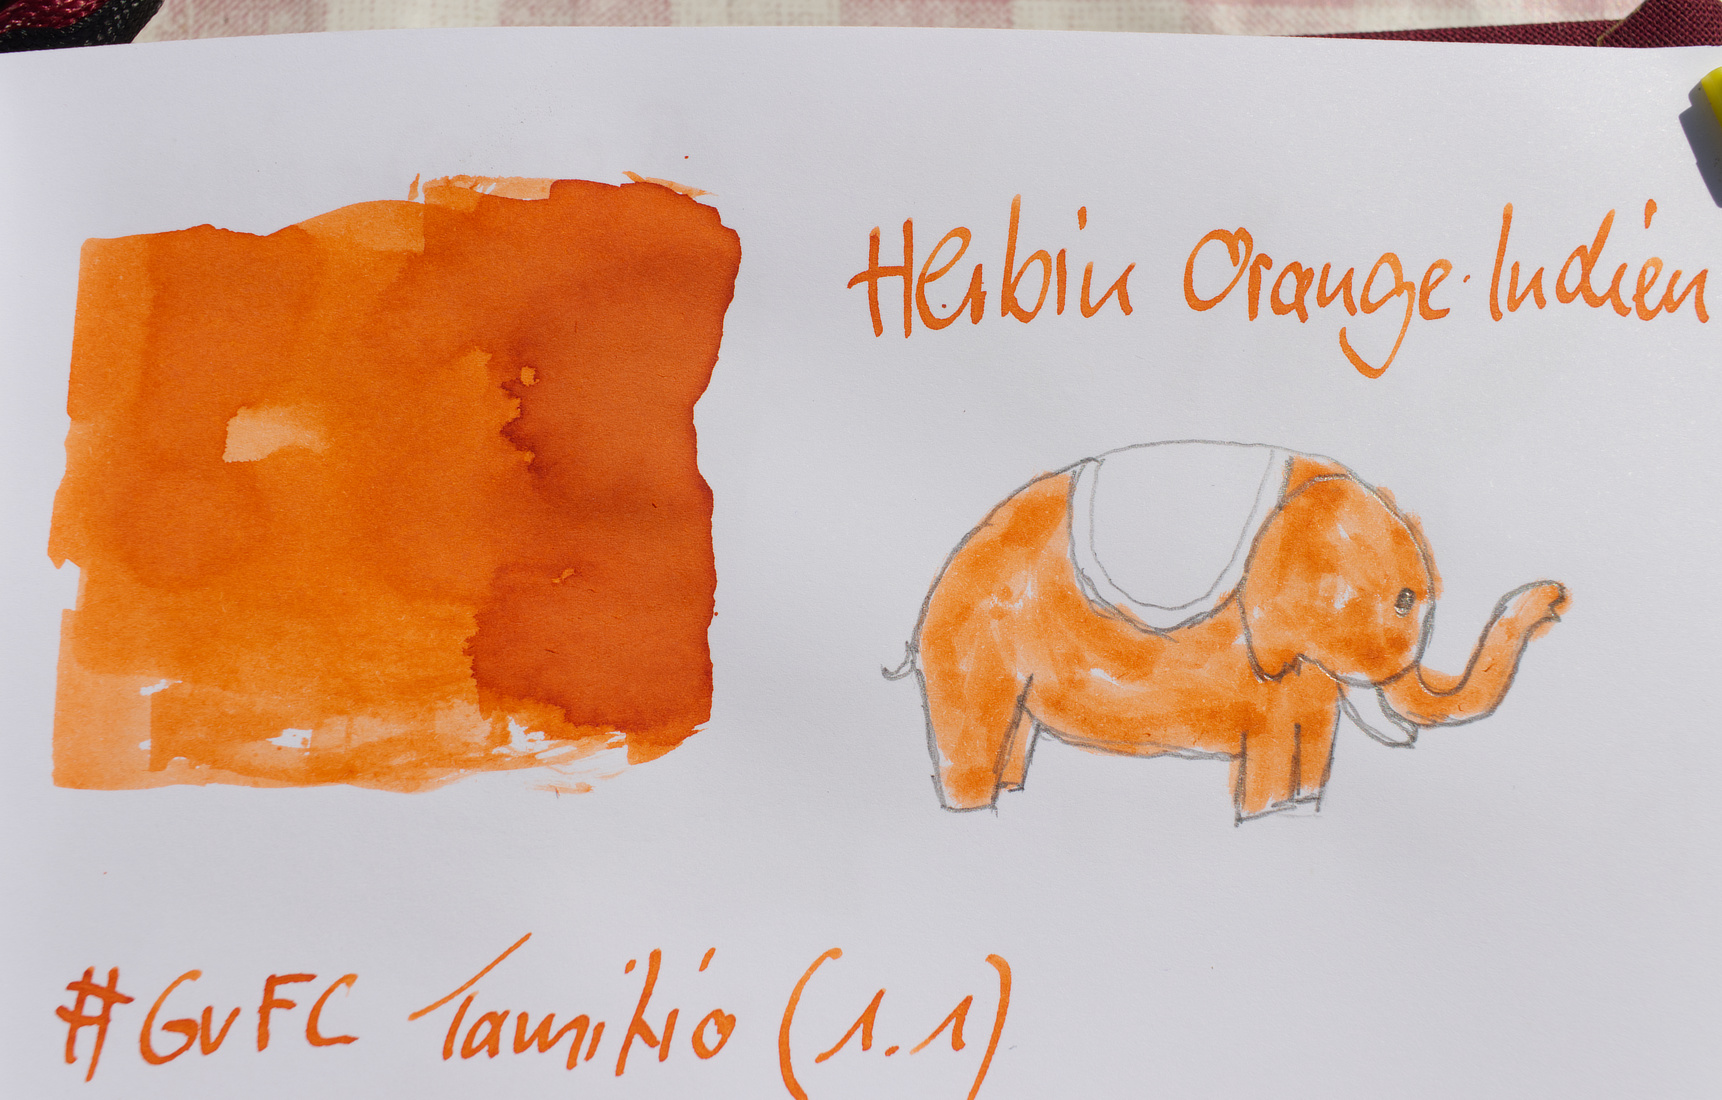 Herbin Orange Indien
#GvFC Tamitio (1.1)